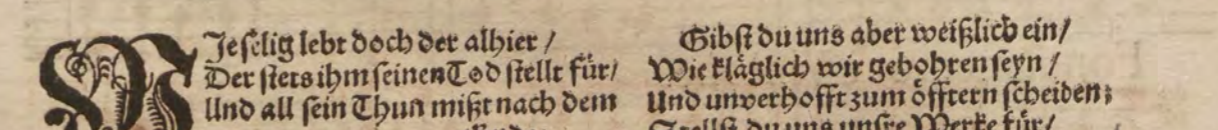 WJe selig lebt doch der alhier /
Der stets ihm seinen Tod stellt für/
Und all sein Thun mißt nach dem
Gibst du uns aber weißlich ein/
Wie kläglich wir gebohren seyn /
Und unverhofft zum öfftern scheiden;
Stellst du uns unsre Werke für/